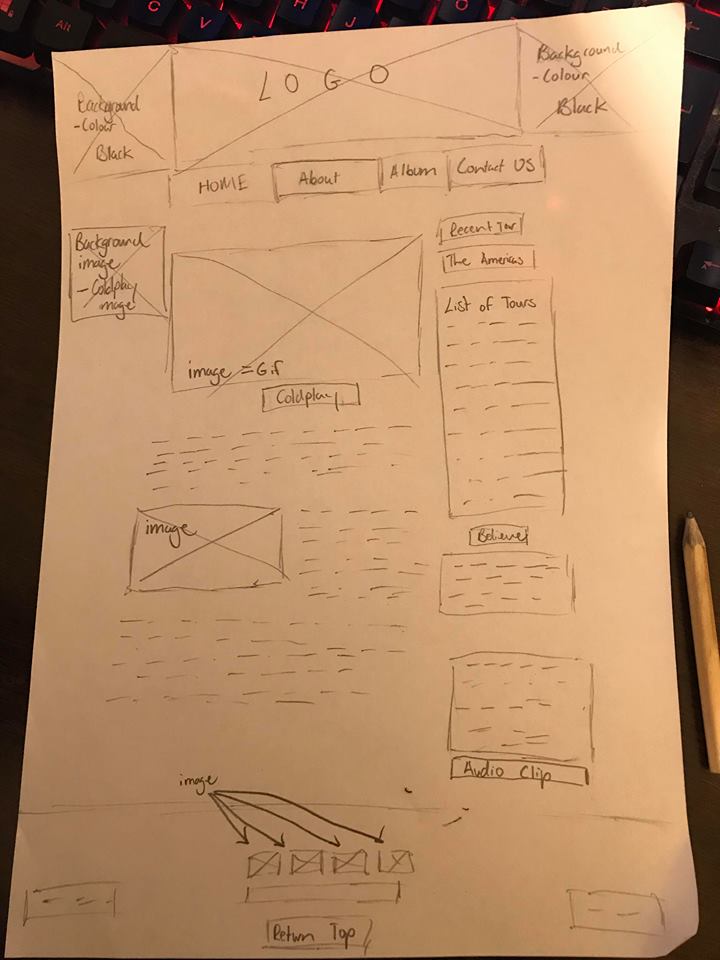 Alt
C
V
H
J
LOGO
Background
-Colour
Black
Background
-Colour
Black
HOME
About
Album
Contact US
Background
image
- Coldplay
image
image = Gif
Coldplay
Recent Tour
The Americas
List of Tours
image
Believe
Audio Clip
image
Return Top